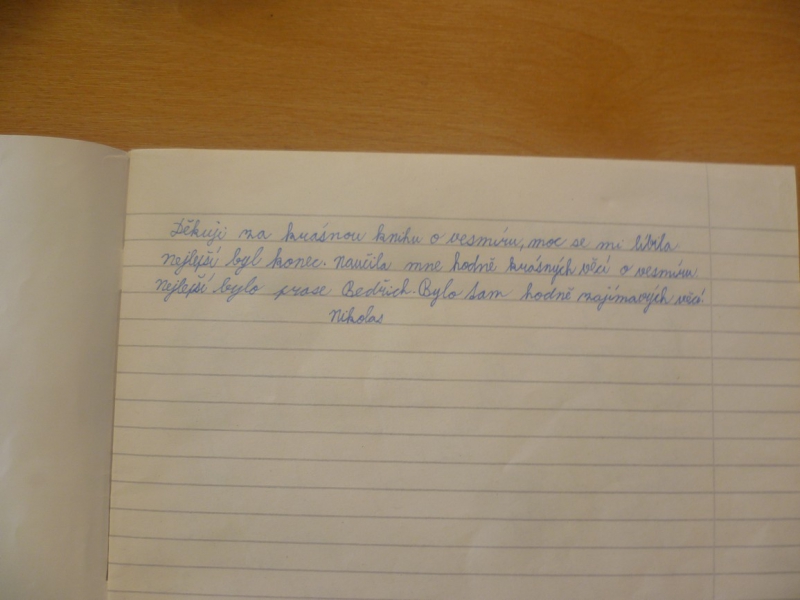 Děkuji za krásnou knihu o vesmíru, moc se mi líbila
nejlepší byl konec. naučila mne hodně krásných věcí o vesmíru
nejlepší bylo prase Bedřich. Bylo tam hodně zajímavých věcí
Nikolas